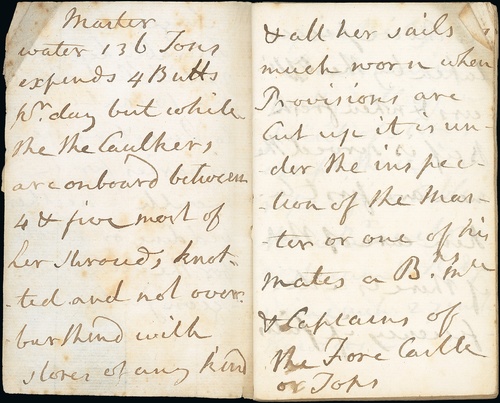 Master
water 136 Tons
expends 4 Butts
pr. day but while
the the Caulkers
are onboard between
4 & five most of
her shrouds knot-
-ted and not over.
burthend with
stores of any kind
& all her sails
much worn when
Provisions are
Cut up it is un-
-der the inspec-
-tion of the Mas-
-ter or one of his
mates a Bns. Mte
& Captains of
the Fore Castle
or Tops